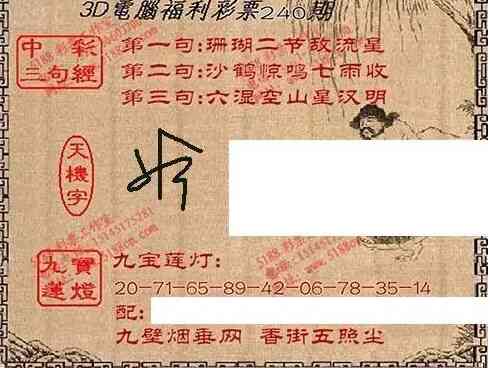 3D電腦福利彩票240期
中彩三句經
第一句:珊瑚二节敌流星
第二句:沙鹤惊鸣七雨收
第三句:六湿空山星汉明
天機字
九寶蓮燈
九宝莲灯:
20-71-65-89-42-06-78-35-14
配:
九壁烟垂网 香街五照尘